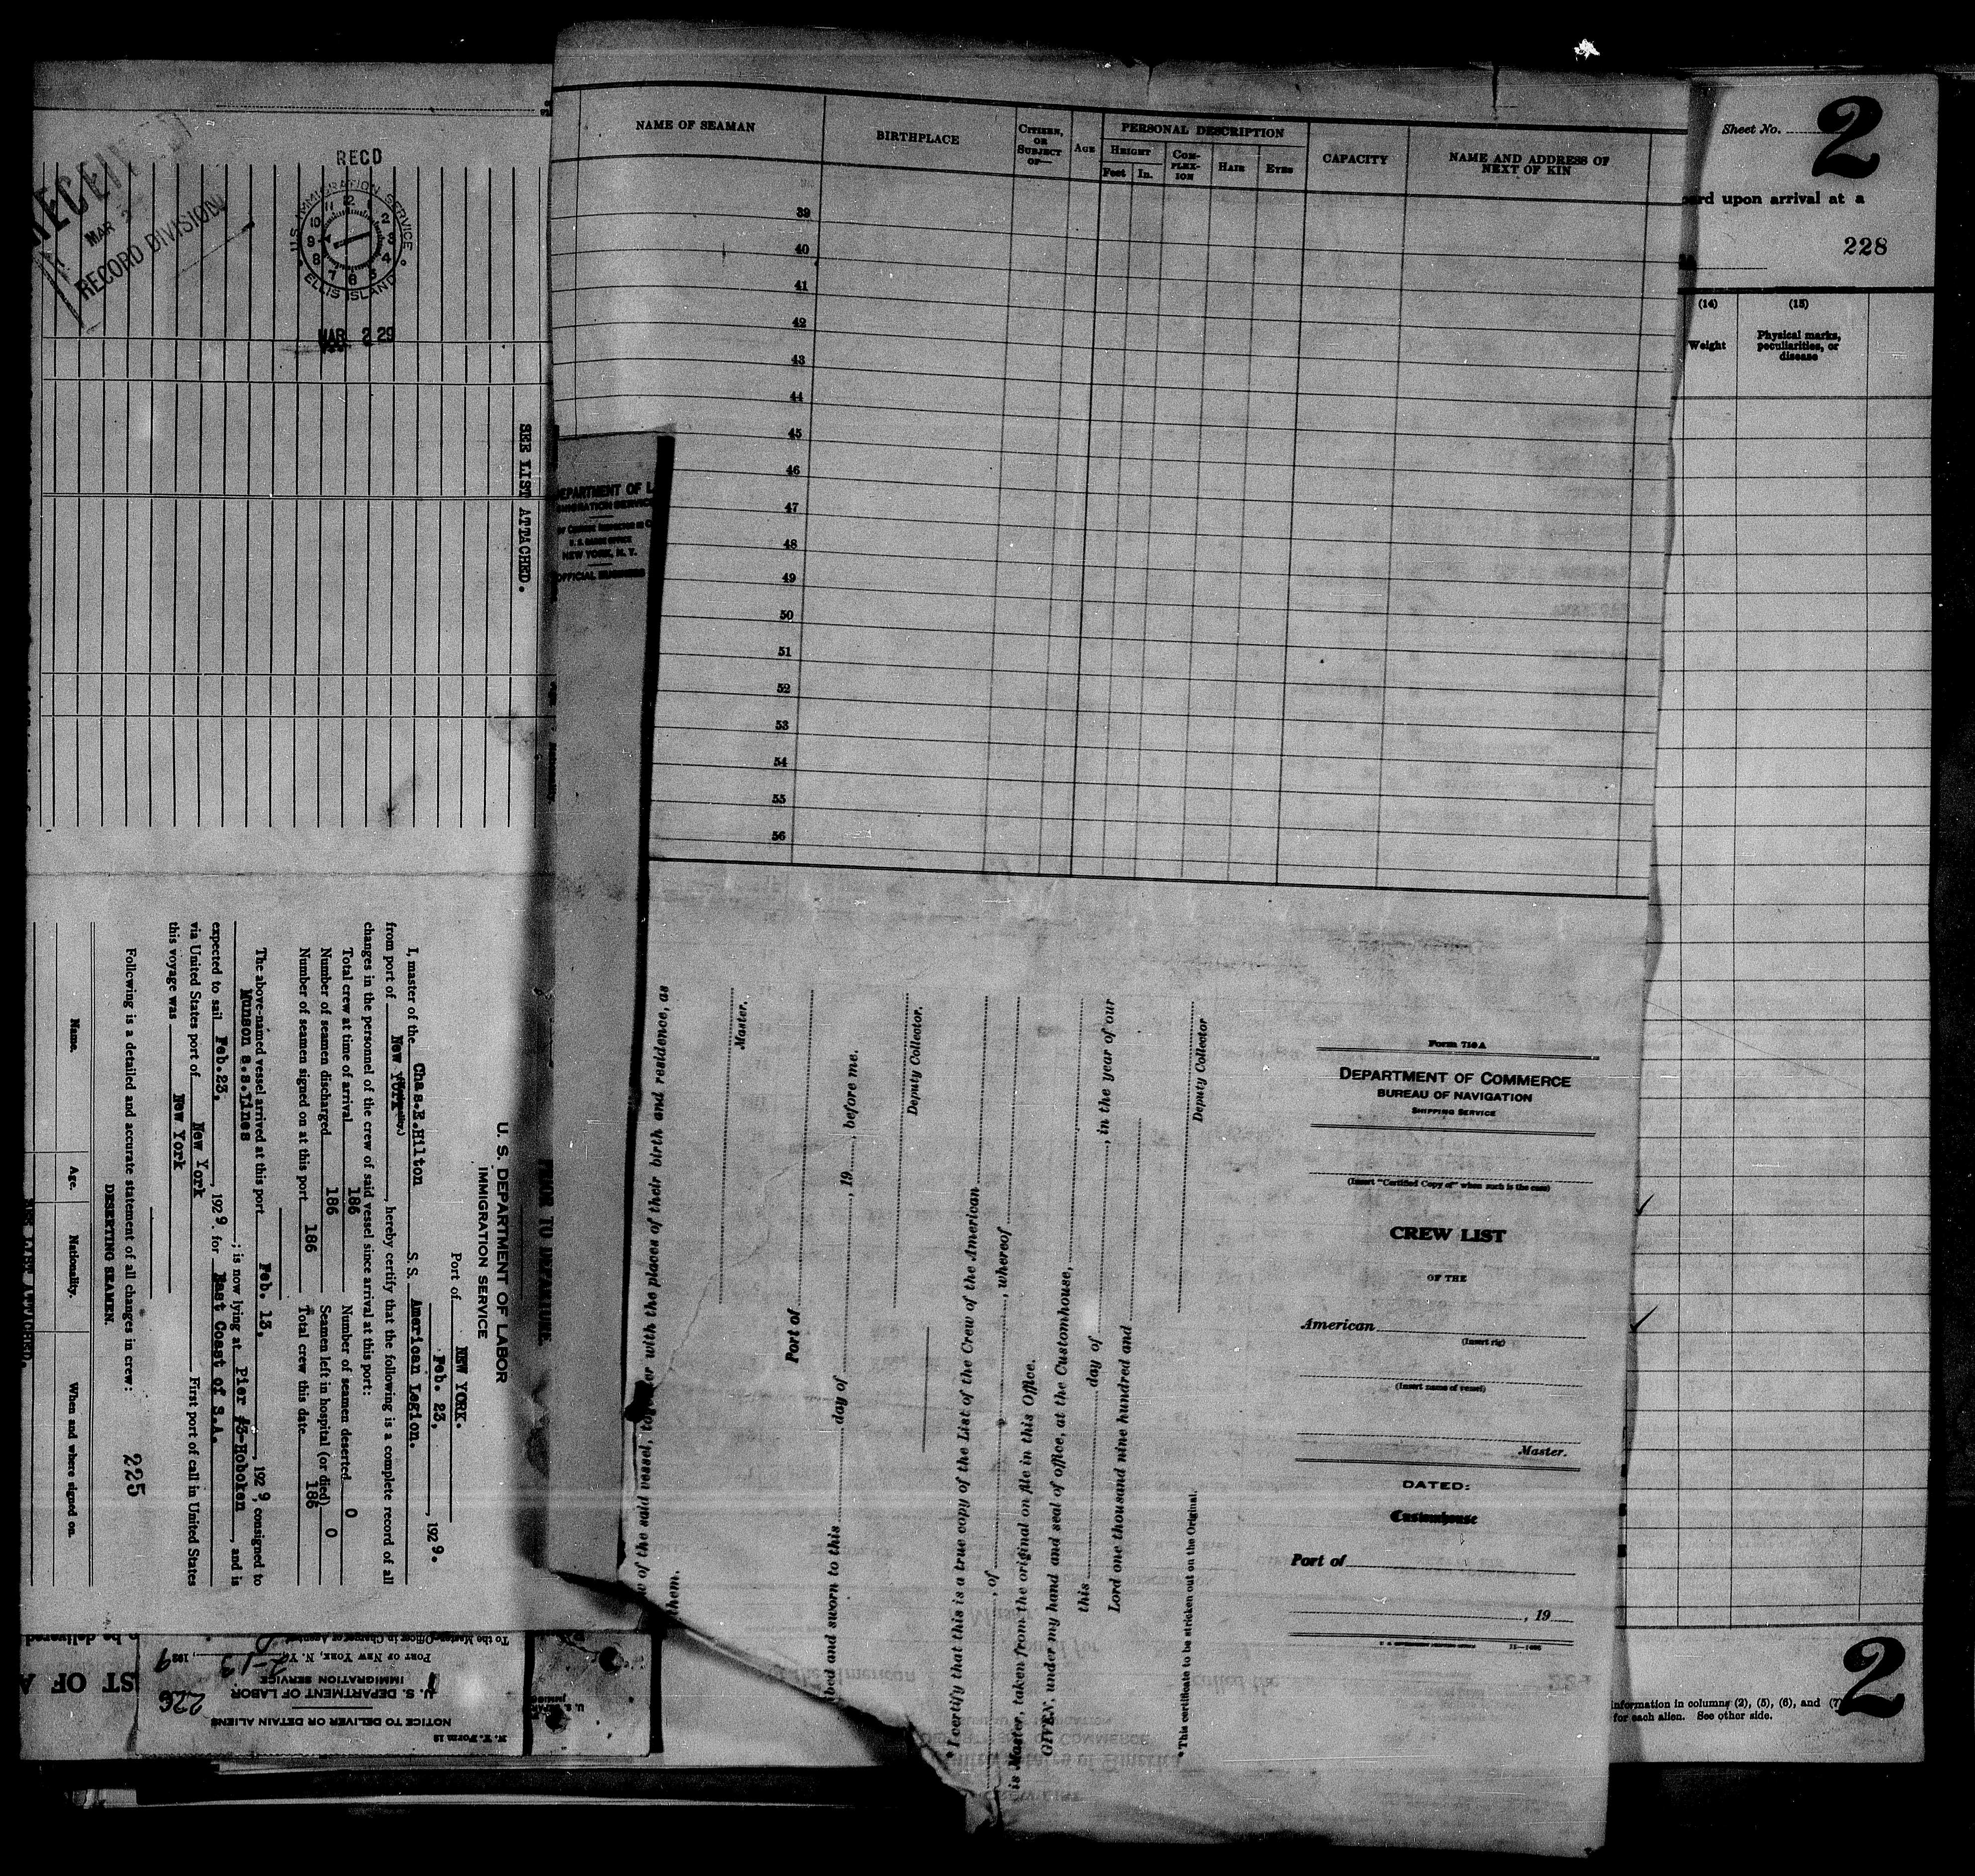 RECEIVED
MAR 2
RECORD DIVISION
RECD
U.S. IMMIGRATION SERVICE
ELLIS ISLAND
MAR 2 29
SEE LIST ATTACHED.
PRIOR TO DEPARTURE
U. S. DEPARTMENT OF LABOR
IMMIGRATION SERVICE
Port of NEW YORK.
Feb. 23, 1929.
I, master of the S. S. American Legion.
Chas.E.Hilton
from port of New York, hereby certify that the following is a complete record of all
changes in the personnel of the crew of said vessel since arrival at this port:
Total crew at time of arrival 186 Number of seamen deserted 0
Number of seamen discharged 186 Seamen left in hospital (or died) 0
Number of seamen signed on at this port 186 Total crew this date 186
The above-named vessel arrived at this port Feb. 13, 1929, consigned to
Munson S.S.Lines; is now lying at Pier #3-Hoboken, and is
expected to sail Feb.23, 1929. for East Coast of S.A.
via United States port of New York First port of call in United States
this voyage was New York
Following is a detailed and accurate statement of all changes in crew: 225
DESERTING SEAMEN.
Name. Age. Nationality. When and where signed on.
N. Y. Form 18
NOTICE TO DELIVER OR DETAIN ALIENS
U. S. DEPARTMENT OF LABOR 226
IMMIGRATION SERVICE
PORT OF NEW YORK, N. Y. 2-13, 1929
To the Master, Officer in Charge or Agent of
DEPARTMENT OF L
IMMIGRATION SERVICE
U. S. BARGE OFFICE
NEW YORK, N. Y.
OFFICIAL BUSINESS
NAME OF SEAMAN
BIRTHPLACE
CITIZEN, OR SUBJECT OF—
AGE
PERSONAL DESCRIPTION
HEIGHT
Feet In.
COMPLEXION
HAIR
EYES
CAPACITY
NAME AND ADDRESS OF
NEXT OF KIN
39
40
41
42
43
44
45
46
47
48
49
50
51
52
53
54
55
56
of the said vessel, together with the places of their birth and residence, as
them.
Master.
Port of
bed and sworn to this day of , 19 , before me.
Deputy Collector.
*I certify that this is a true copy of the List of the Crew of the American
, of , whereof
is Master, taken from the original on file in this Office.
GIVEN, under my hand and seal of office, at the Customhouse,
this day of , in the year of our
Lord one thousand nine hundred and
Deputy Collector
*This certificate to be stricken out on the Original.
Form 710A
DEPARTMENT OF COMMERCE
BUREAU OF NAVIGATION
SHIPPING SERVICE
(Insert "Certified Copy of" when such is the case)
CREW LIST
OF THE
American
(Insert rig)
(Insert name of vessel)
Master.
DATED:
Customhouse
Port of
, 19
Sheet No. 2
upon arrival at a
228
(14) (15)
Weight
Physical marks,
peculiarities, or
disease
2
information in columns (2), (5), (6), and (7)
for each alien. See other side.